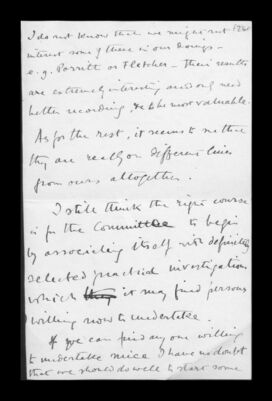 I do not know that we might not
interest some of these in our doings –
e.g. Porritt or Fletcher – their results
are extremely interesting and only need
better recording, to be most valuable.
As for the rest, it seems to me that
they are really on different lines
from ours altogether.
I still think the right course
is for the Committee to begin
by associating itself with definitely
selected practical investigations
which they it may find persons
willing now to undertake.
If we can find anyone willing
to undertake mice I have no doubt
that we should do well to start some